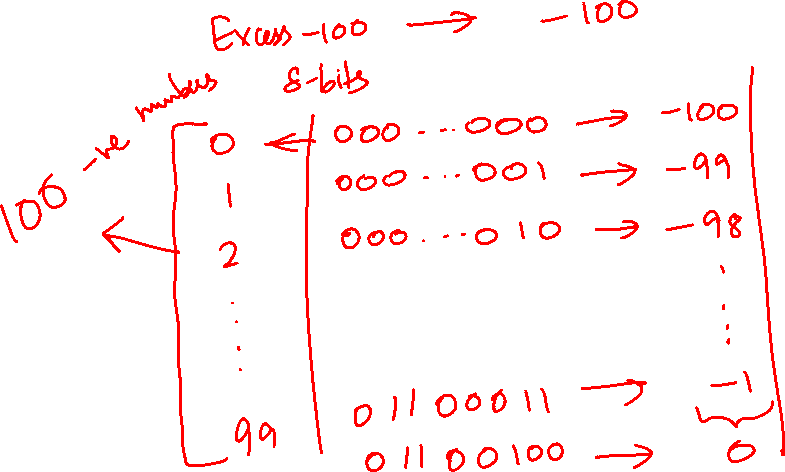 Excess-100 → -100
100 -ve numbers
8-bits
0 ← 000...000 → -100
1 000...001 → -99
2 000...010 → -98
99 01100011 → -1
01100100 → 0